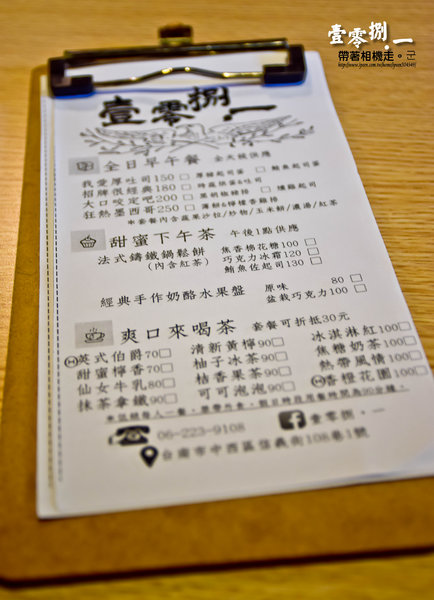 壹零捌．一
帶著相機走。
壹零捌．一
全日早午餐 全天候供應
我愛厚吐司150
招牌很經典180
大口咬定吧200
狂熱墨西哥250
甜蜜下午茶 午後1點供應
法式鑄鐵鍋鬆餅 焦香棉花糖100
(內含紅茶) 巧克力冰霜120
鮪魚佐起司130
經典手作奶酪水果盤 原味 80
盆栽巧克力100
爽口來喝茶 套餐可折抵30元
H英式伯爵70 清新黃檸90 冰淇淋紅100
甜蜜檸香70 柚子冰茶90 焦糖奶茶100
仙女牛乳80 桔香果茶90 熱帶風情100
抹茶拿鐵90 可可泡泡90 H香橙花園100
06-223-9108 壹零捌。一
台南市中西區信義街108巷1號